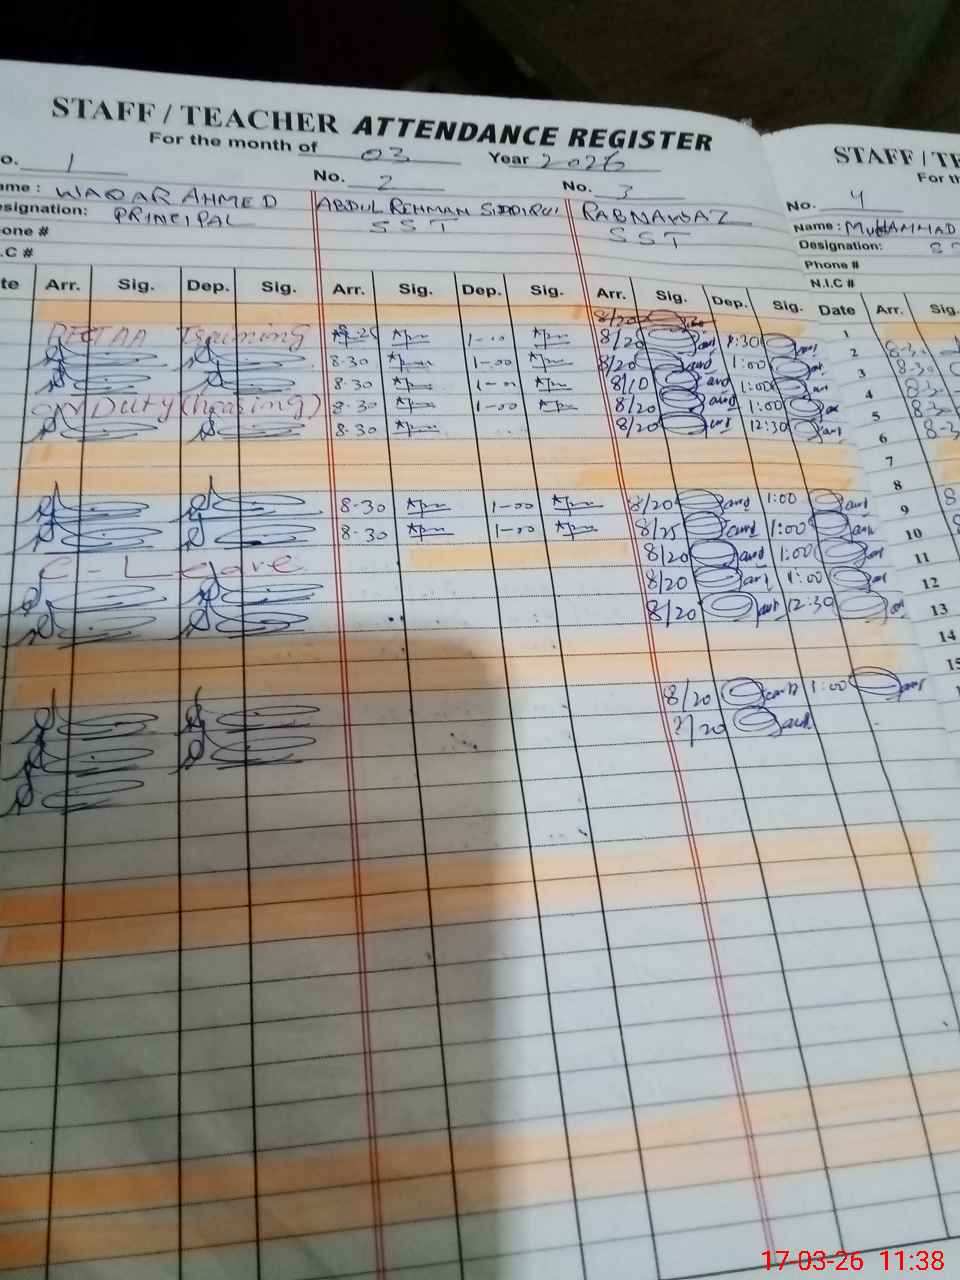 STAFF / TEACHER ATTENDANCE REGISTER
For the month of 03 Year 2026
No. 1 No. 2 No. 3
Name : WAQAR AHMED ABDUL REHMAN SIDDIQUI RABNAWAZ
Designation: PRINCIPAL SST SST
Phone #
N.I.C #
Date Arr. Sig. Dep. Sig. Arr. Sig. Dep. Sig. Arr. Sig. Dep. Sig.
8/20
Training 8-25 1-00 8/20 1:30
8-30 1-00 8/20 1:00
8-30 1-00 8/10 1:00
ON Duty (hearing) 8-30 1-00 8/20 1:00
8-30 8/20 12:30
8-30 1-00 8/20 1:00
8-30 1-00 8/25 1:00
C-Leave 8/20 1:00
8/20 1:00
8/20 12:30
8/20 1:00
8/20
STAFF / TE
For th
No. 4
Name : MUHAMMAD
Designation:
Phone #
N.I.C #
Date Arr. Sig.
1
2 8-30
3 8-30
4 8-30
5 8-30
6 8-30
7
8
9 8
10 8
11
12
13
14
15
17-03-26 11:38